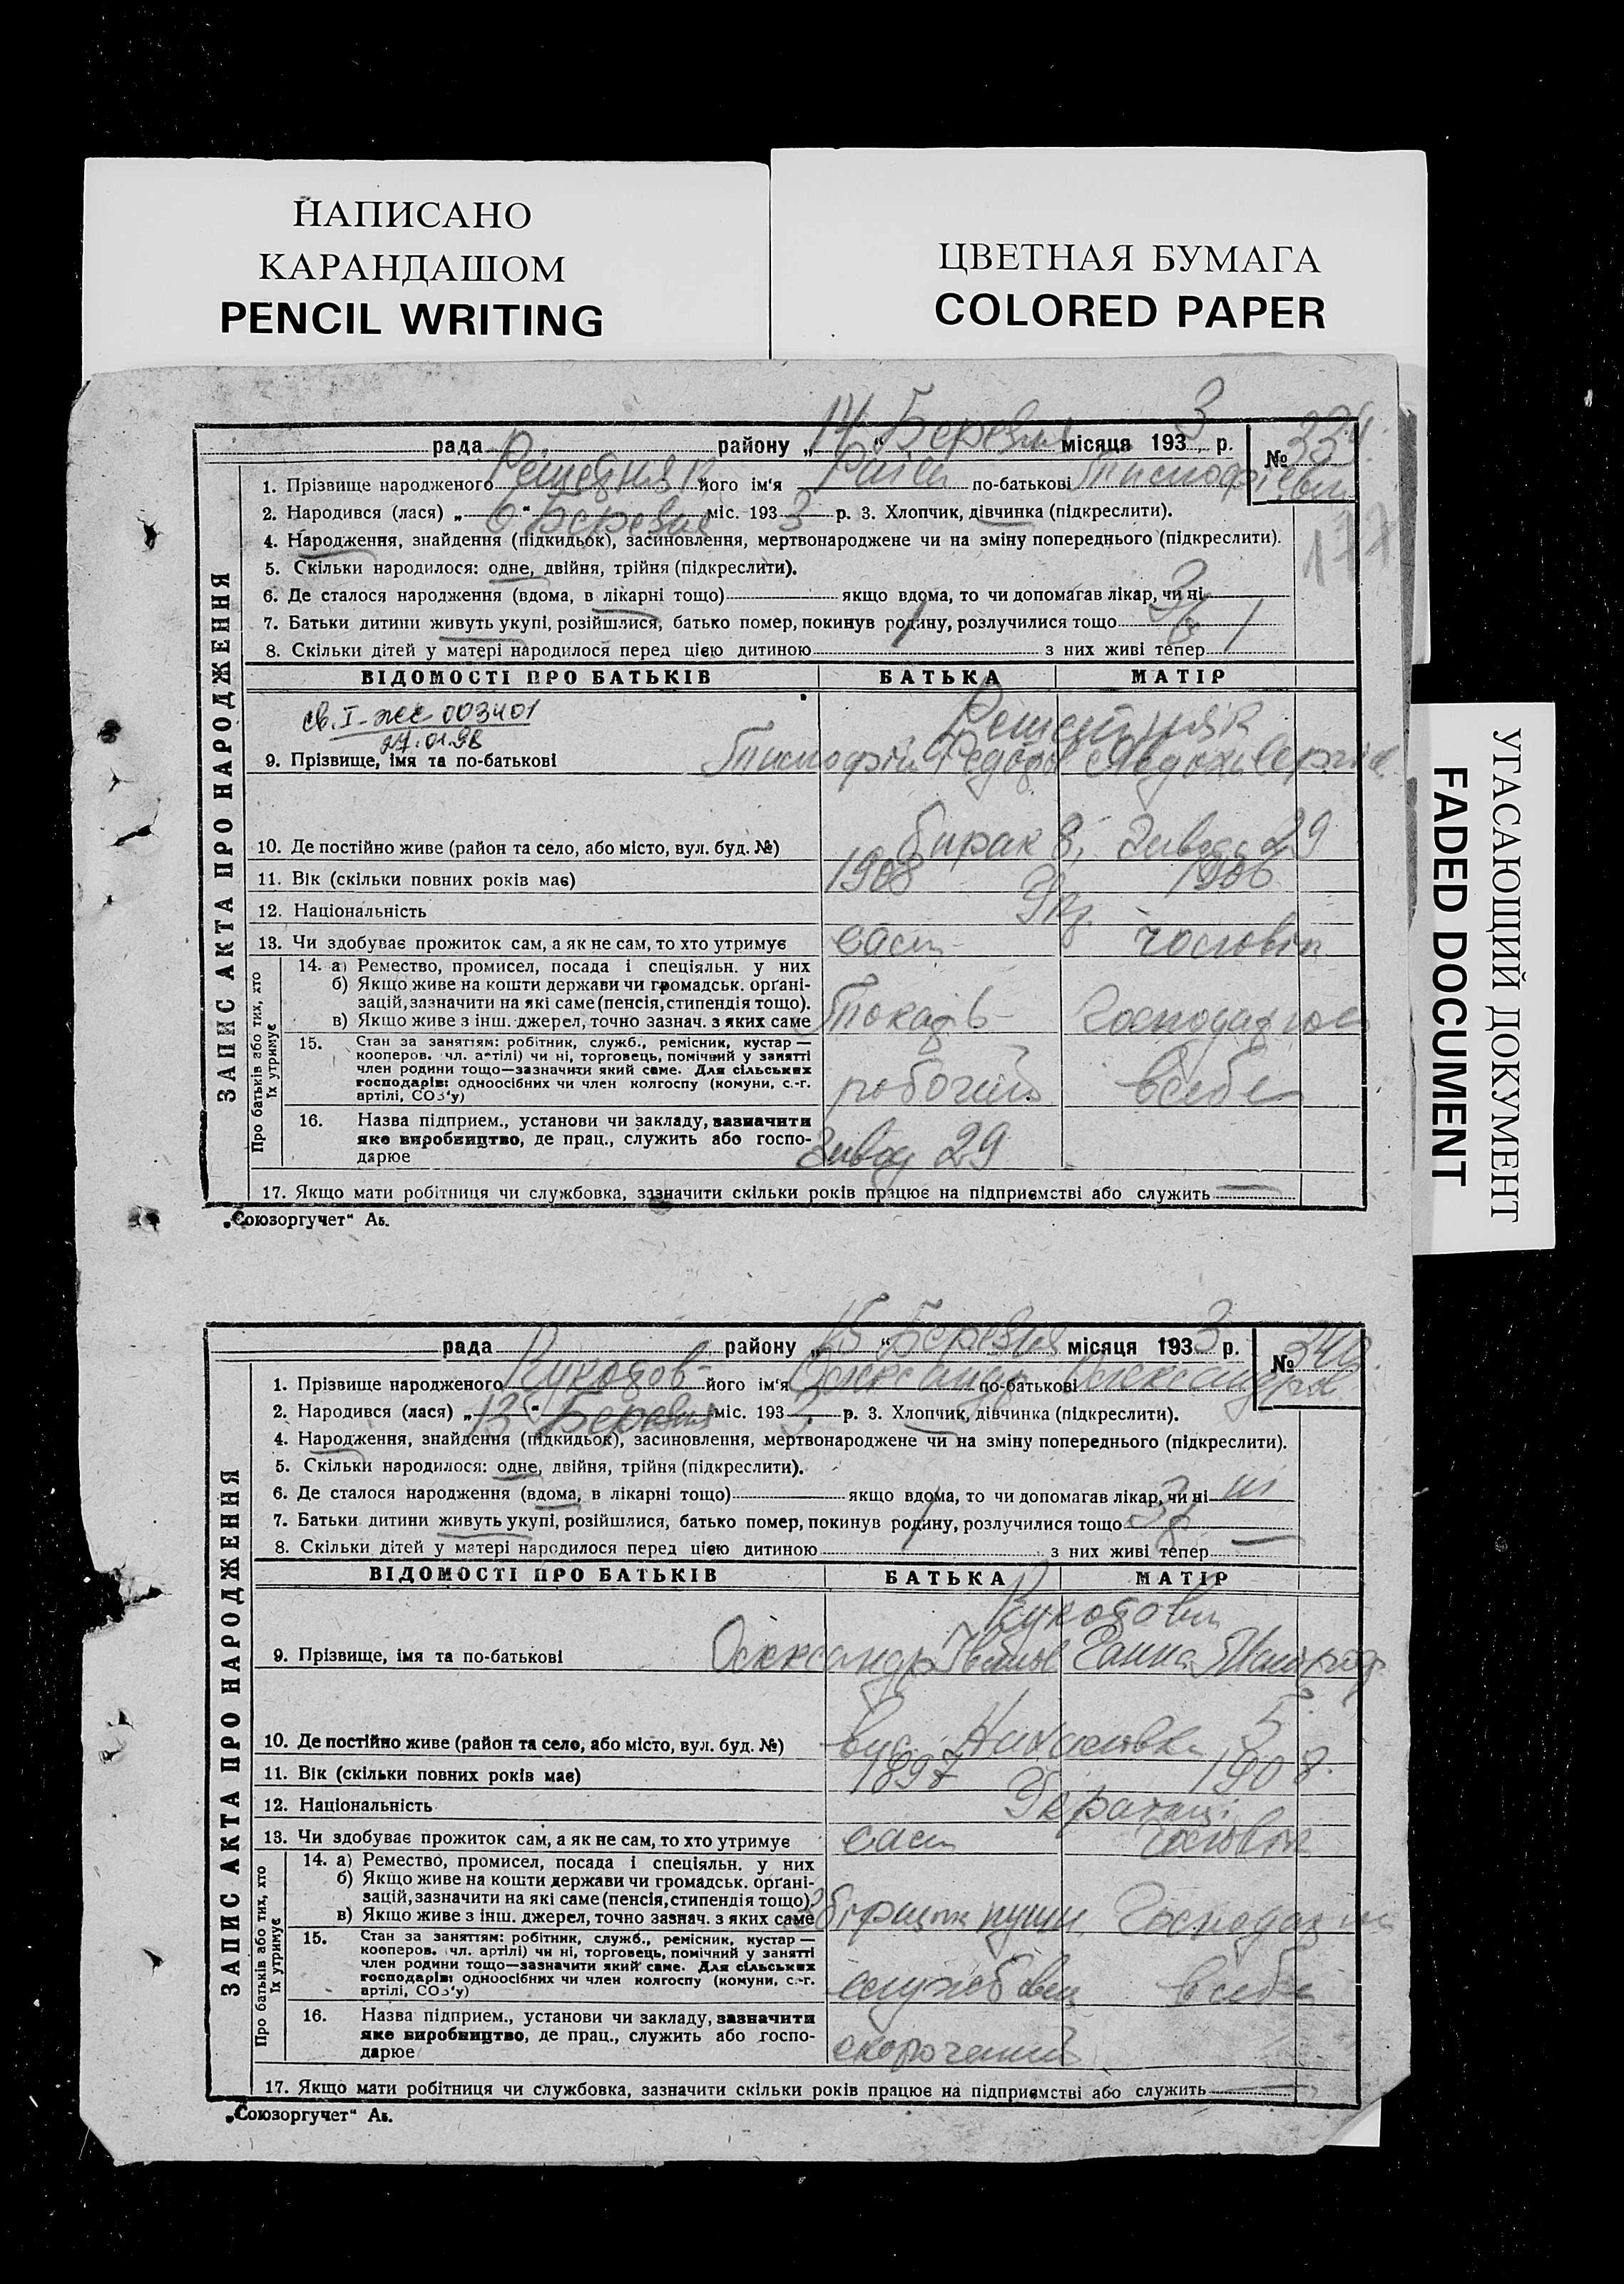 НАПИСАНО
КАРАНДАШОМ
PENCIL WRITING
ЦВЕТНАЯ БУМАГА
COLORED PAPER
УГАСАЮЩИЙ ДОКУМЕНТ
FADED DOCUMENT
ЗАПИС АКТА ПРО НАРОДЖЕННЯ
рада району „14“ Березня місяця 1933 р. №
1. Прізвище народженого Решетняк його ім'я Раїса по-батькові Тимофієвн
2. Народився (лася) „6“ Березня міс. 1933 р. 3. Хлопчик, дівчинка (підкреслити).
4. Народження, знайдення (підкидьок), засиновлення, мертвонароджене чи на зміну попереднього (підкреслити).
177
5. Скільки народилося: одне, двійня, трійня (підкреслити).
6. Де сталося народження (вдома, в лікарні тощо) якщо вдома, то чи допомагав лікар, чи ні
7. Батьки дитини живуть укупі, розійшлися, батько помер, покинув родину, розлучилися тощо
8. Скільки дітей у матері народилося перед цією дитиною 1 з них живі тепер 1
ВІДОМОСТІ ПРО БАТЬКІВ БАТЬКА МАТІР
св. I-жс 003401
27.01.98
Решетняк
9. Прізвище, імя та по-батькові Тимофій Федоров Явдоха Сергіе
10. Де постійно живе (район та село, або місто, вул. буд. №) барак 8, заводу 29
11. Вік (скільки повних років має) 1908 1906
12. Національність Укр.
13. Чи здобуває прожиток сам, а як не сам, то хто утримує сам чоловік
Про батьків або тих, хто їх утримує
14. а) Ремество, промисел, посада і спеціяльн. у них
б) Якщо живе на кошти держави чи громадськ. організацій, зазначити на які саме (пенсія, стипендія тощо).
в) Якщо живе з інш. джерел, точно зазнач. з яких саме Токарь Господарює
15. Стан за заняттям: робітник, служб., ремісник, кустар —
кооперов. чл. артілі) чи ні, торговець, помічний у занятті
член родини тощо—зазначити який саме. Для сільських
господарів: одноосібних чи член колгоспу (комуни, с.-г.
артілі, СОЗ'у) робочий всебе
16. Назва підприєм., установи чи закладу, зазначити
яке виробництво, де прац., служить або госпо-
дарює Завод 29
17. Якщо мати робітниця чи службовка, зазначити скільки років працює на підприємстві або служить —
„Союзоргучет“ Аь.
ЗАПИС АКТА ПРО НАРОДЖЕННЯ
рада району „15“ Березня місяця 1933 р. № 240.
1. Прізвище народженого його ім'я Олександр по-батькові Олександров
2. Народився (лася) „13“ Березня міс. 1933 р. 3. Хлопчик, дівчинка (підкреслити).
4. Народження, знайдення (підкидьок), засиновлення, мертвонароджене чи на зміну попереднього (підкреслити).
5. Скільки народилося: одне, двійня, трійня (підкреслити).
6. Де сталося народження (вдома, в лікарні тощо) якщо вдома, то чи допомагав лікар, чи ні ні
7. Батьки дитини живуть укупі, розійшлися, батько помер, покинув родину, розлучилися тощо
8. Скільки дітей у матері народилося перед цією дитиною 1 з них живі тепер —
ВІДОМОСТІ ПРО БАТЬКІВ БАТЬКА МАТІР
9. Прізвище, імя та по-батькові Олександр Ганна
10. Де постійно живе (район та село, або місто, вул. буд. №) вул. 5
11. Вік (скільки повних років має) 1897 1908.
12. Національність Українці
13. Чи здобуває прожиток сам, а як не сам, то хто утримує сам чоловік
Про батьків або тих, хто їх утримує
14. а) Ремество, промисел, посада і спеціяльн. у них
б) Якщо живе на кошти держави чи громадськ. організацій, зазначити на які саме (пенсія, стипендія тощо).
в) Якщо живе з інш. джерел, точно зазнач. з яких саме Господарює
15. Стан за заняттям: робітник, служб., ремісник, кустар —
кооперов. чл. артілі) чи ні, торговець, помічний у занятті
член родини тощо—зазначити який саме. Для сільських
господарів: одноосібних чи член колгоспу (комуни, с.-г.
артілі, СОЗ'у) службовец всебе
16. Назва підприєм., установи чи закладу, зазначити
яке виробництво, де прац., служить або госпо-
дарює скорочений
17. Якщо мати робітниця чи службовка, зазначити скільки років працює на підприємстві або служить —
„Союзоргучет“ Аь.